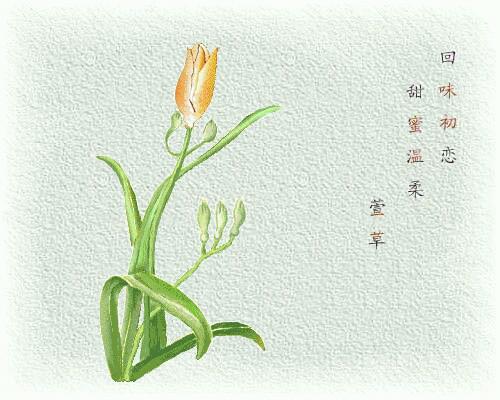 回味初恋
甜蜜温柔
萱草